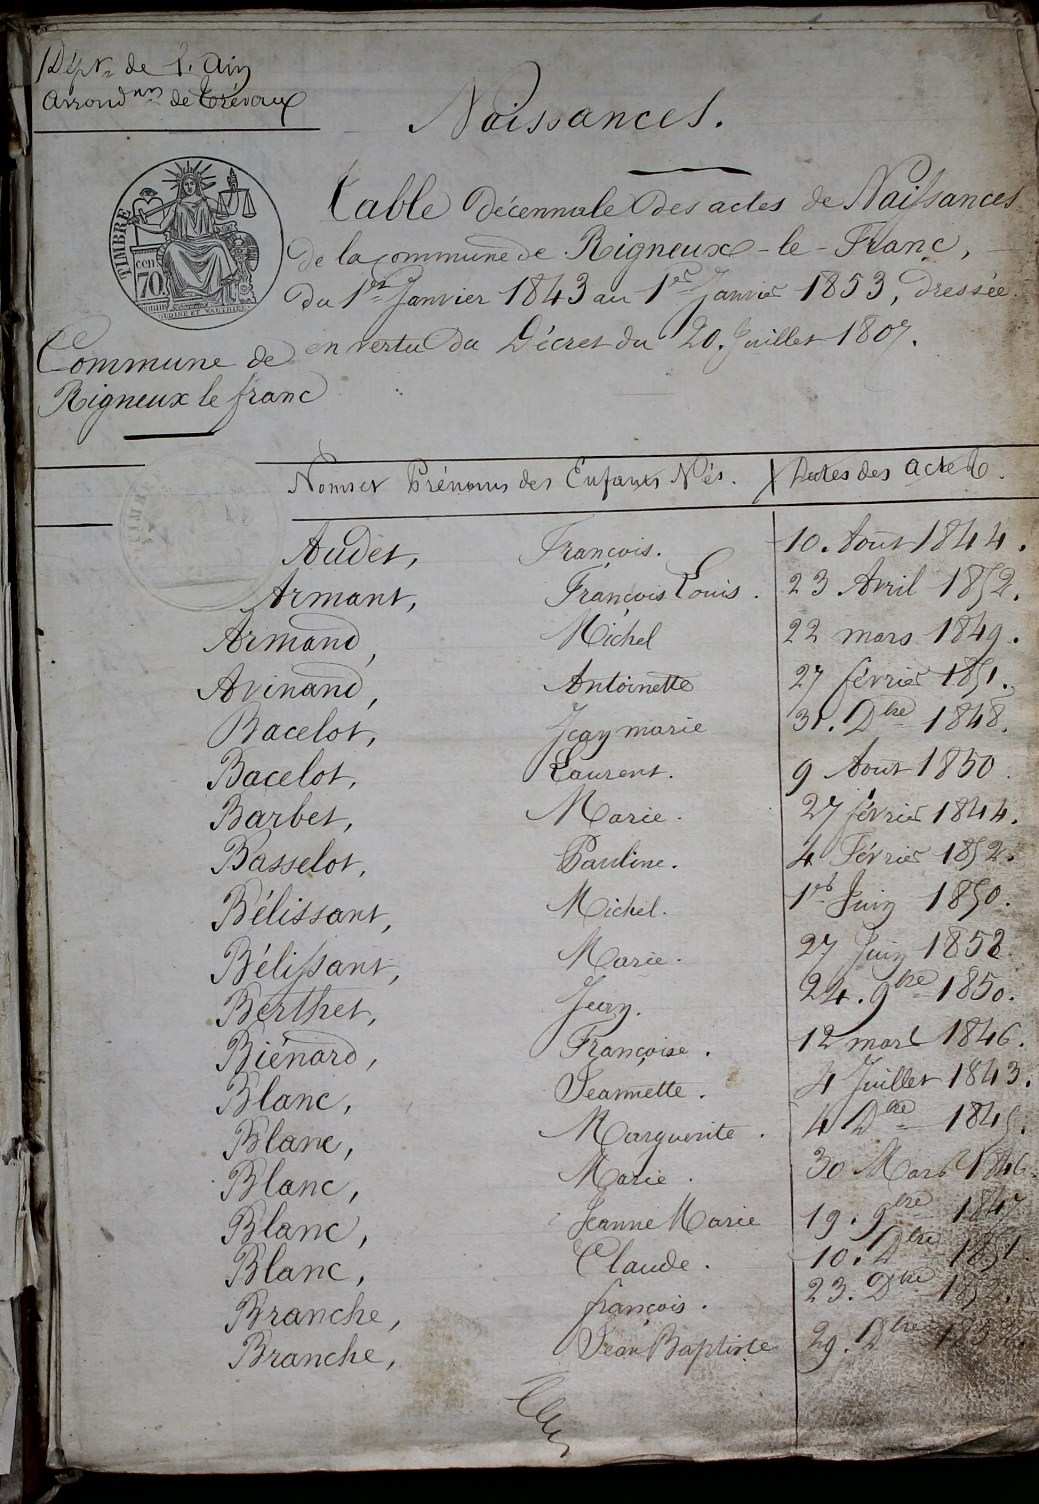 Dépt. de l'Ain
Arrondnt de Trévoux
Naissances.
TIMBRE
cen. 70
Table décennale des actes de Naissances
de la commune de Rigneux-le-Franc,
du 1er Janvier 1843 au 1er Janvier 1853, dressée
en vertu du Décret du 20. Juillet 1807.
Commune de
Rigneux le franc
Noms et Prénoms des Enfants Nés. Dates des actes.
Audet, François. 10. Août 1844.
Armant, François Louis. 23 Avril 1852.
Armand, Michel 22 mars 1849.
Avinand, Antoinette 27 février 1851.
Bacelot, Jean marie 31. Dbre 1848.
Bacelot, Laurent. 9 Août 1850.
Barbet, Marie. 27 février 1844.
Basselot, Pauline. 4 Février 1852.
Bélissant, Michel. 1er Juin 1850.
Bélissant, Marie. 27 Juin 1852
Berthet, Jean. 24. 9bre 1850.
Biénard, Françoise. 12 mars 1846.
Blanc, Jeannette. 4 Juillet 1843.
Blanc, Marguerite. 4 Dbre 1845.
Blanc, Marie. 30 Mars 1846
Blanc, Jeanne Marie 19. 9bre 1847
Blanc, Claude. 10. Dbre 1851
Branche, françois. 23. Dbre
Branche, Jean Baptiste 29. Dbre